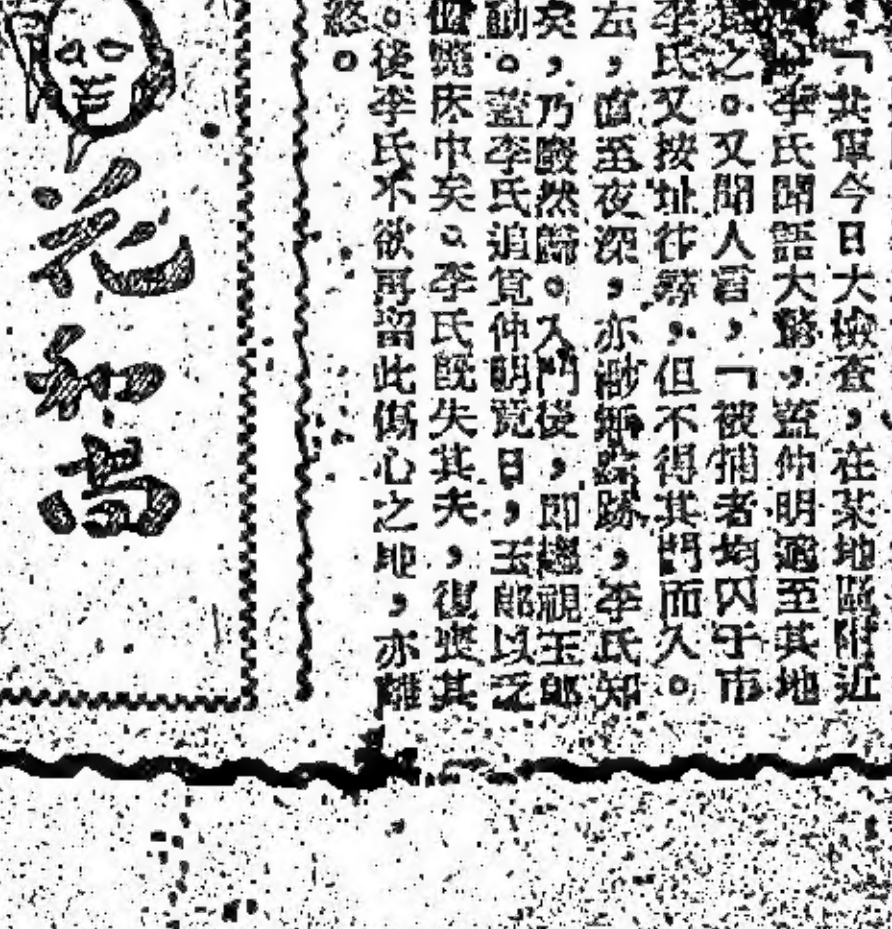 ，「共軍今日大檢查，在某地區附近
李氏聞語大驚，蓋仲明適至其地
之。又聞人言，「被捕者均囚于市
李氏又按址往尋，但不得其門而入。
左，直至夜深，亦渺無蹤跡，李氏知
矣，乃廢然歸。入門後，即趨視玉郎
，蓋李氏追覓仲明竟日，玉郎以乏
斃床中矣。李氏既失其夫，復喪其
。後李氏不欲再留此傷心之地，亦離
。
花和尚